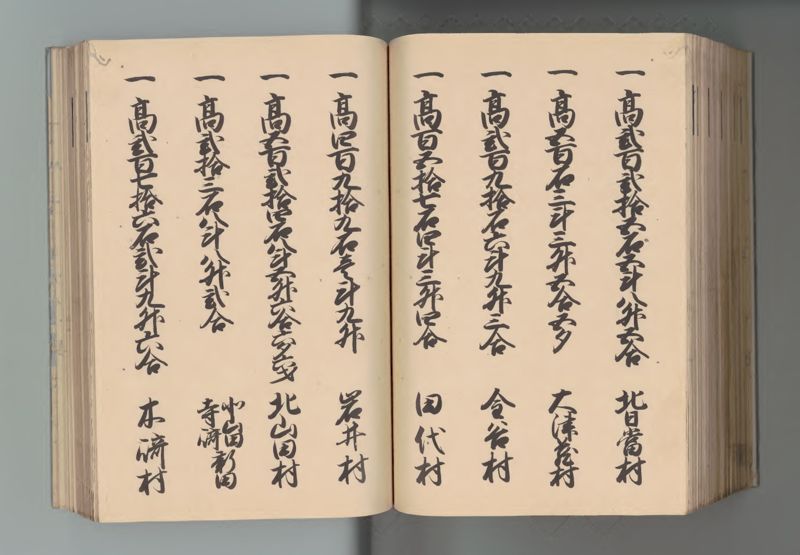 一 高弐百弐拾五石五斗八升五合 北日當村
一 高五百石三斗三升五合五夕 大津倉村
一 高弐百九拾石六斗九升三合 金谷村
一 高百五拾七石四斗三升四合 田代村
一 高四百九拾九石壱斗九升 岩井村
一 高五百弐拾四石八斗五升六合六夕六才 北山田村
一 高弐拾三石八斗八升弐合 小山田新田 寺崎新田
一 高弐百七拾六石弐斗九升六合 木崎村